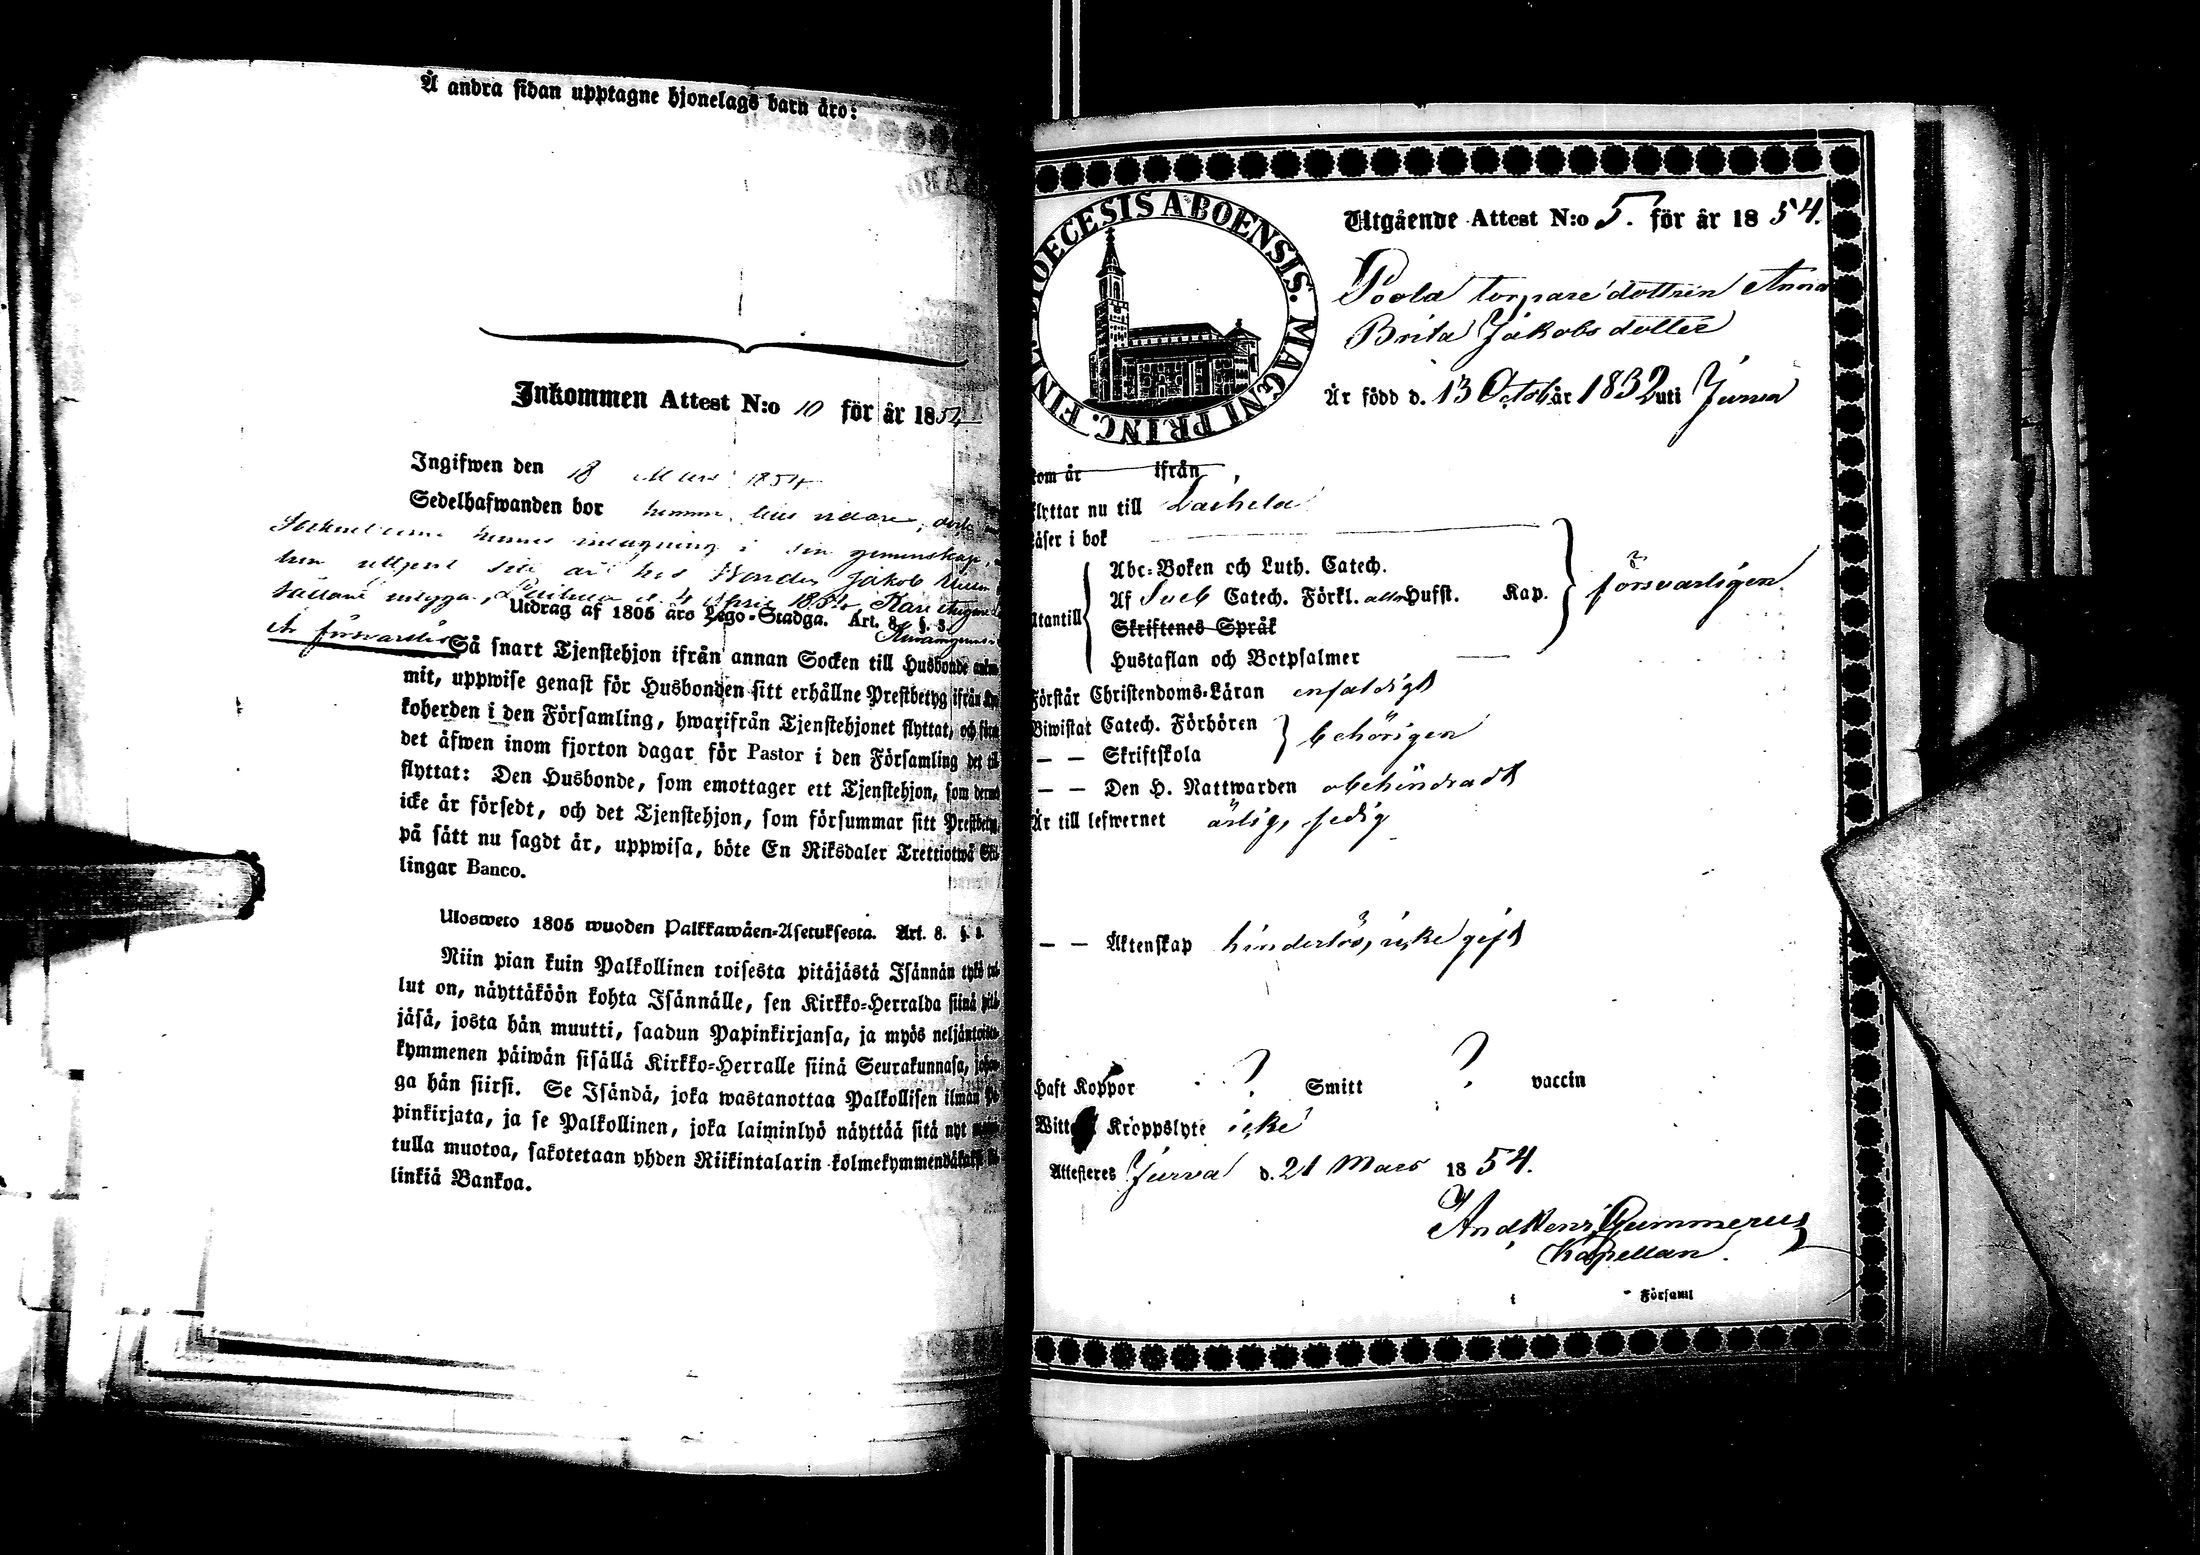 Å andra sidan upptagne hjonelags barn äro:
Inkommen Attest N:o 10 för år 1854
Ingifwen den 18 Mars 1854
Sedelhafwanden bor
hennes intagning i sin gemenskap,
hos Bonden Jakob
d. 4 April 1854
Utdrag af 1805 års Lego-Stadga. Art. 8. §. 3.
Så snart Tjenstehjon ifrån annan Socken till Husbonde
mit, uppwise genast för Husbonden sitt erhållne Prestbetyg ifrån
koherden i den Församling, hwarifrån Tjenstehjonet flyttat, och
det äfwen inom fjorton dagar för Pastor i den Församling det till
flyttat: Den Husbonde, som emottager ett Tjenstehjon, som dermed
icke är försedt, och det Tjenstehjon, som försummar sitt Prestbetyg,
på sätt nu sagdt är, uppwisa, böte En Riksdaler Trettiotwå Skil-
lingar Banco.
Ulosweto 1805 wuoden Palkkawäen-Asetuksesta. Art. 8. §. 3.
Niin pian kuin Palkollinen toisesta pitäjästä Isännän tykö tul-
lut on, näyttäköön kohta Isännälle, sen Kirkko-Herralda siinä pitä-
jäsä, josta hän muutti, saadun Papinkirjansa, ja myös neljäntoista-
kymmenen päiwän sisällä Kirkko-Herralle siinä Seurakunnasa, johon-
ga hän siirsi. Se Isändä, joka wastanottaa Palkollisen ilman Pa-
pinkirjata, ja se Palkollinen, joka laiminlyö näyttää sitä nyt
tulla muotoa, sakotetaan yhden Riikintalarin kolmekymmendäkaksi kil-
linkiä Bankoa.
DIOECESIS ABOENSIS. MAGNI PRINC. FINL.
Utgående Attest N:o 5. för år 1854.
Poola torpare dottren Anna
Brita Jakobsdotter
Är född d. 13 Octob. år 1832 uti Jurva
kom år ifrån
flyttar nu till Laihela
läser i bok
Abc-Boken och Luth. Catech.
Af Sveb Catech. Förkl. alla Hufst. Kap. försvarligen
Utantill
Skriftenes Språk
Hustaflan och Botpsalmer
Förstår Christendoms-Läran enfaldigt
Biwistat Catech. Förhören behörigen
— — Skriftskola
— — Den H. Nattwarden obehindradt
Är till lefwernet ärlig, sedig
— — Äktenskap hinderlös, icke gift
Haft Koppor ? Smitt ? vaccin
Kroppslyte icke
Attesteres Jurva d. 21 Mars 1854.
And. Henr. Gummerus
Kapellan.
i Församl